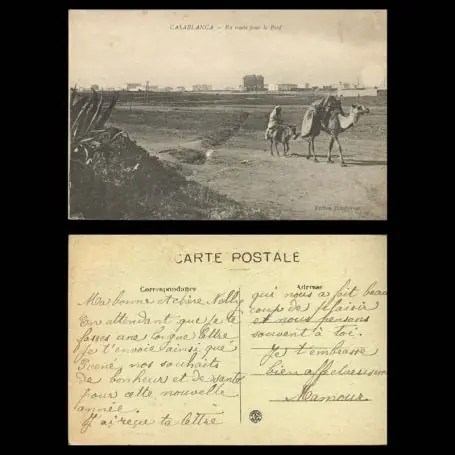 CASABLANCA - En route pour le Bled
Edition
CARTE POSTALE
Correspondance
Adresse
Ma bonne et chère Nelly
En attendant que je te
fasses une longue lettre
je t'envoie ainsi que
nos souhaits
de bonheur et de santé
pour cette nouvelle
année.
J'ai reçu ta lettre
qui nous a fait beau
coup de plaisir
et nous pensons
souvent à toi.
Je t'embrasse
bien affectueusem